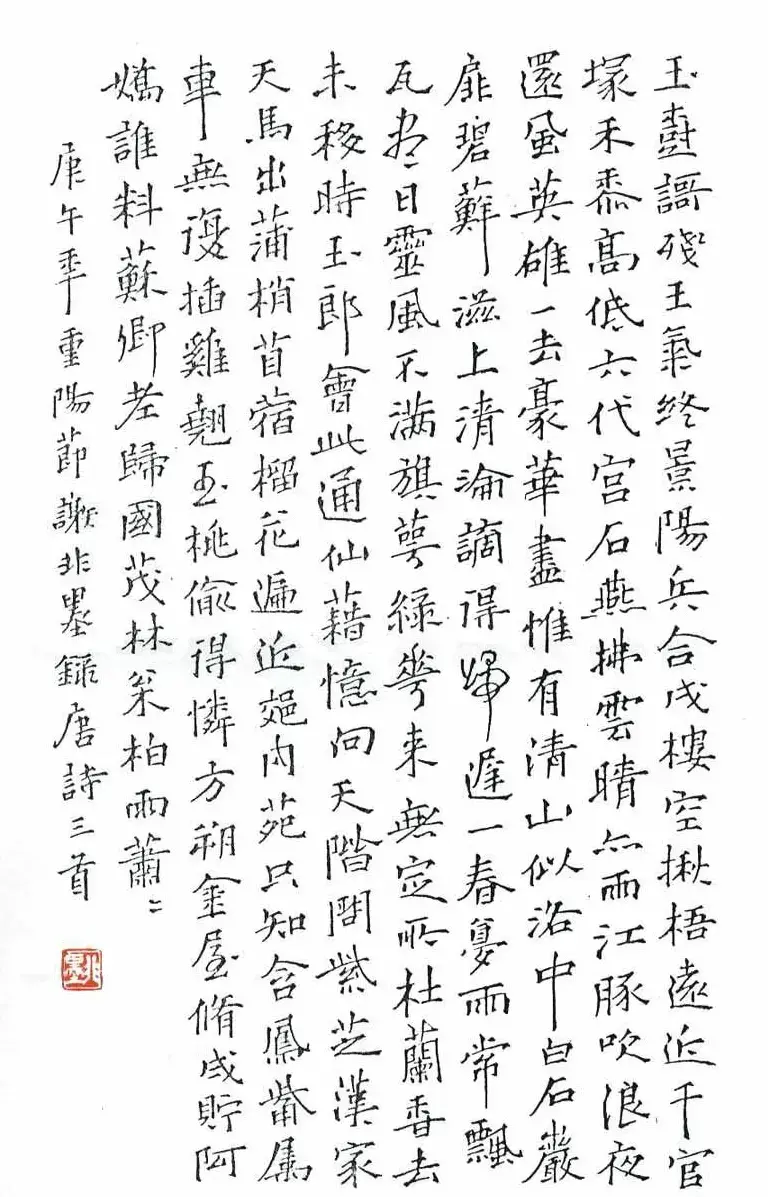 玉樹謌殘王氣終景陽兵合戍樓空楸梧遠近千官
塚禾黍高低六代宮石燕拂雲晴亦雨江豚吹浪夜
還風英雄一去豪華盡惟有清山似洛中白石巖
扉碧蘚滋上清淪謫得歸遲一春夢雨常飄
瓦盡日靈風不滿旗萼綠華来無定所杜蘭香去
未移時玉郎會此通仙藉憶向天階問紫芝漢家
天馬出蒲梢苜蓿榴花遍近郊内苑只知含鳳觜屬
車無復插雞翹玉桃偷得憐方朔金屋脩成貯阿
嬌誰料蘇卿老歸國茂林松柏雨蕭〻
庚午年重陽節謝非墨錄唐詩三首
非墨